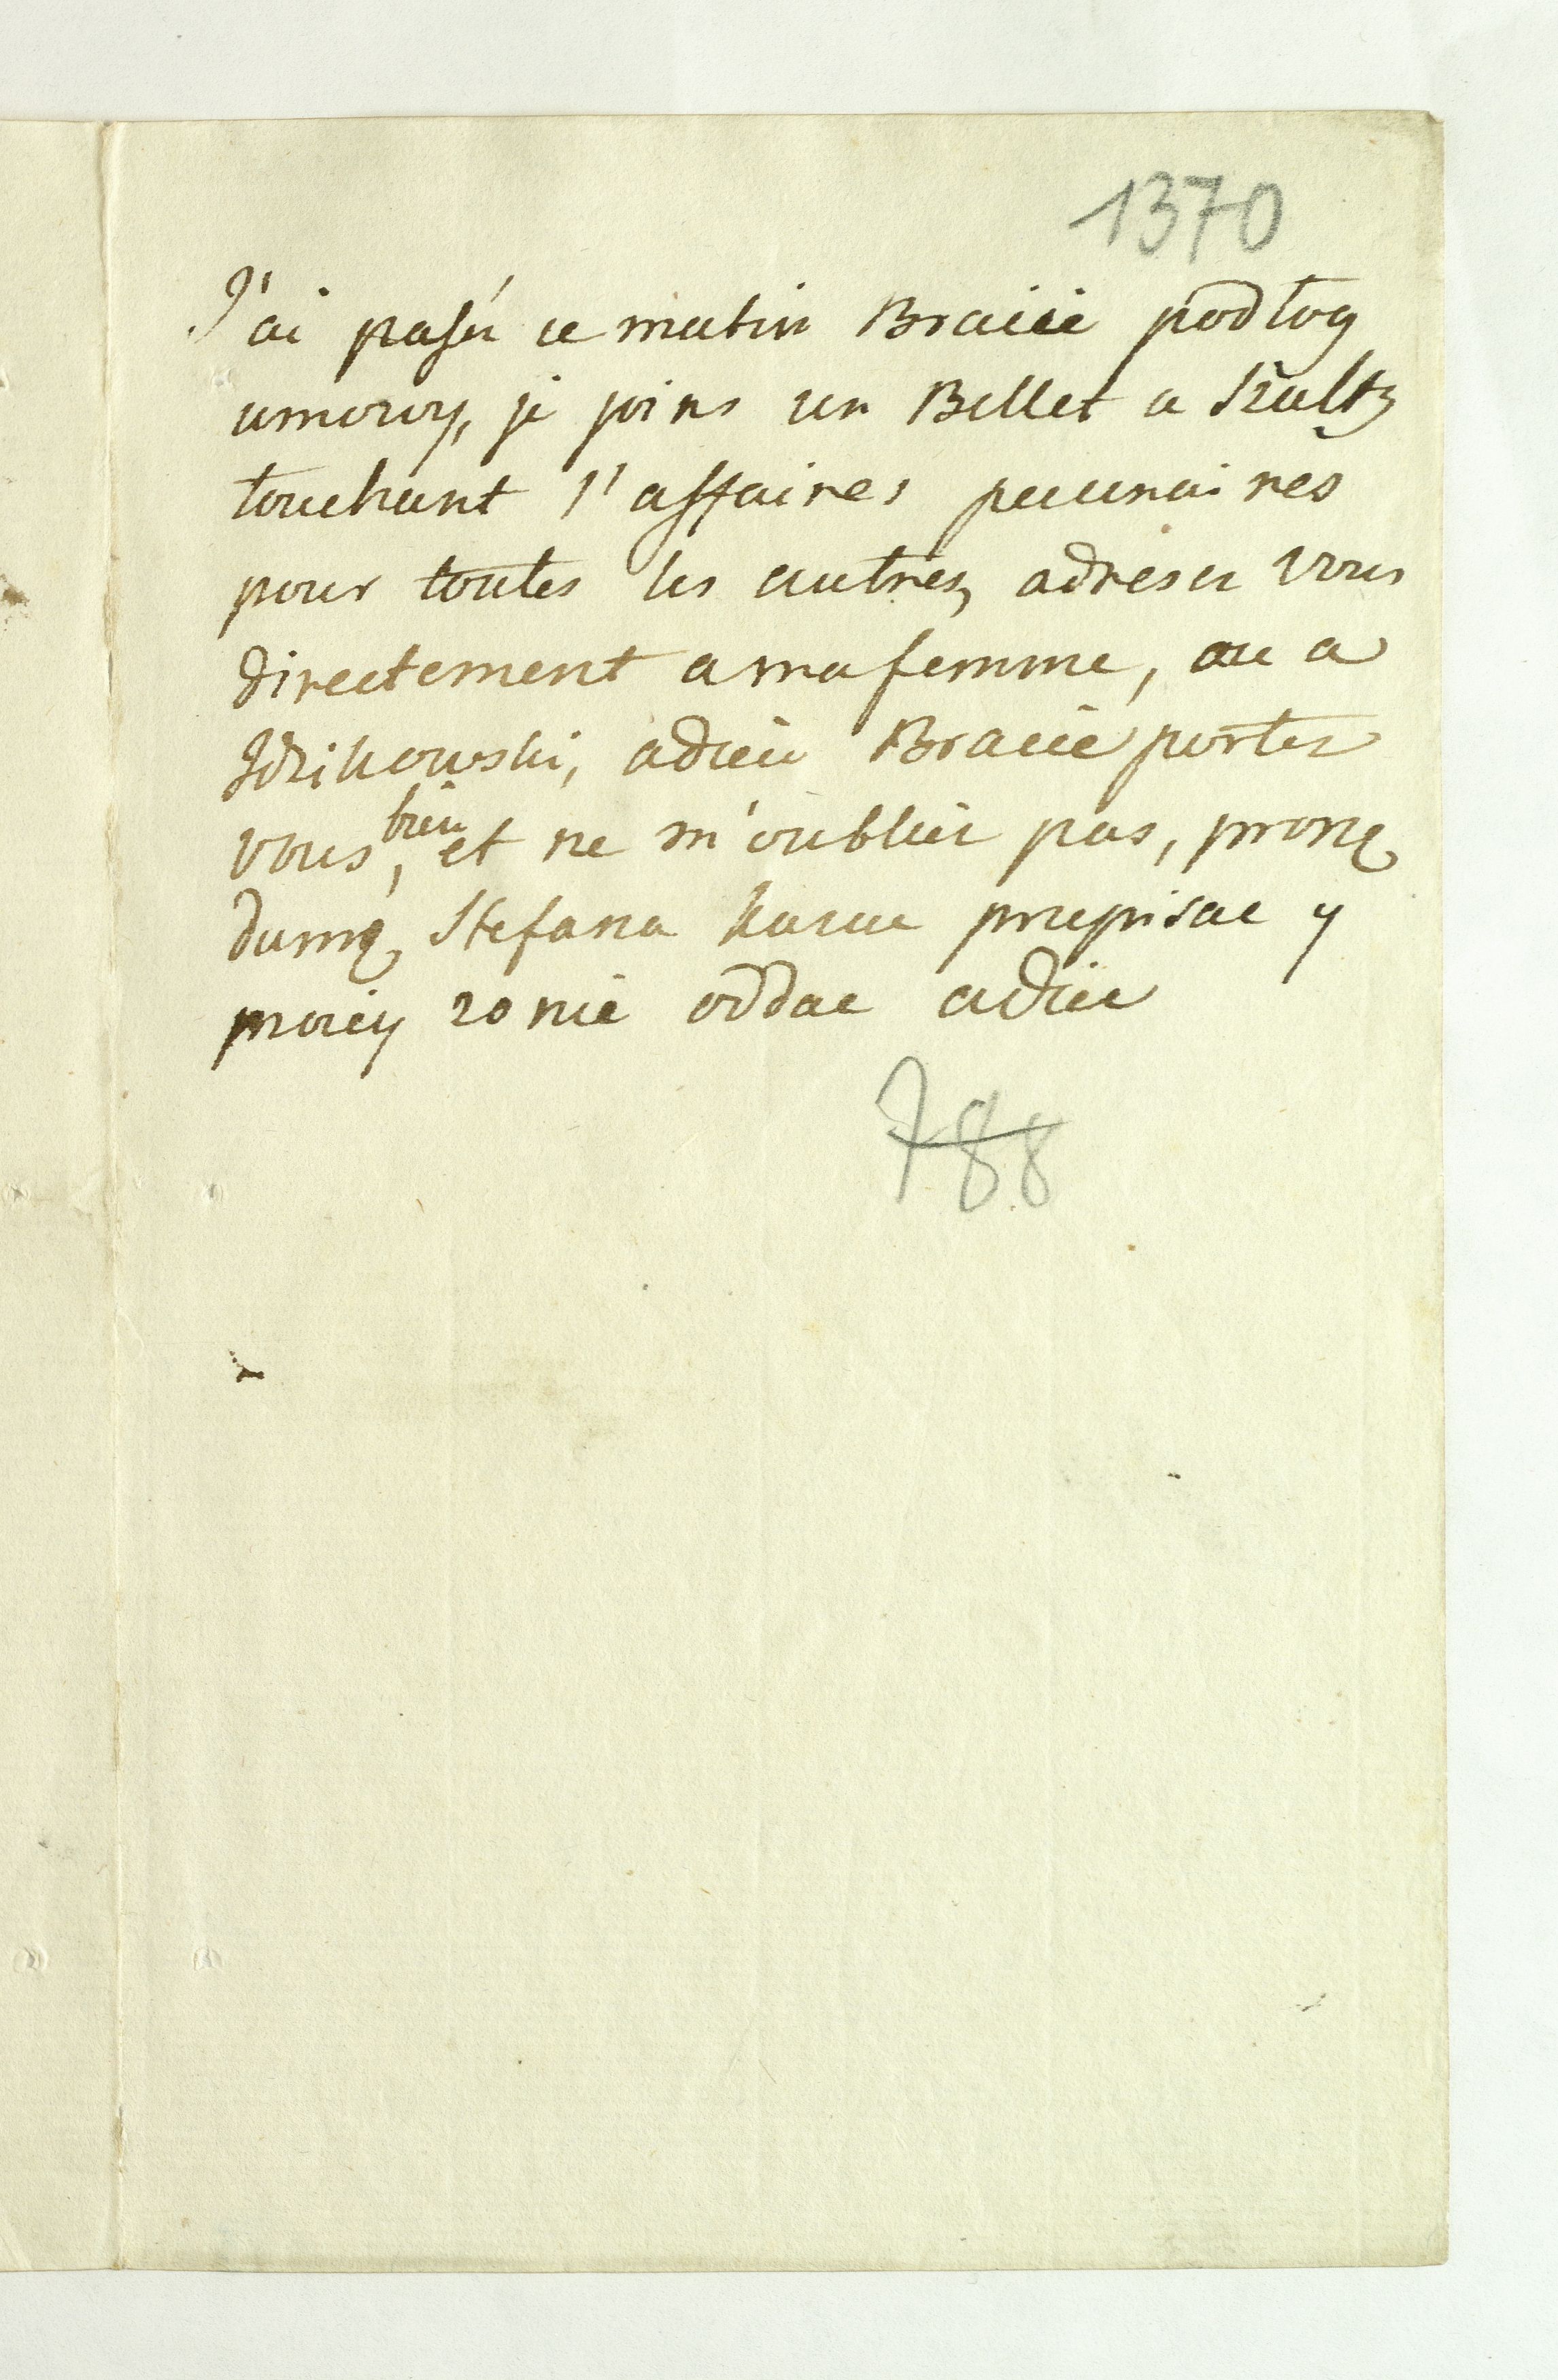 1370
J'ai pasér ce matin Bracie podłog
umowy, je joins un Billet a Szultz
touchant l'affaires pecunaires
pour toutes les autres, adreser vous
directement a ma femme, ou a
Idzikowski, adieu Bracie porter
vous bien, et ne m'oublier pas, prosze
dumę Stefana kazac przepisac y
moiey zonie oddac adieu
788